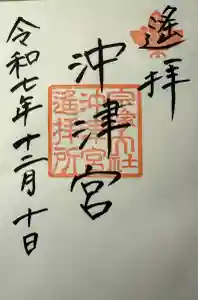 遙拝
沖津宮
令和七年十二月十日
宗像大社
沖津宮
遙拝所